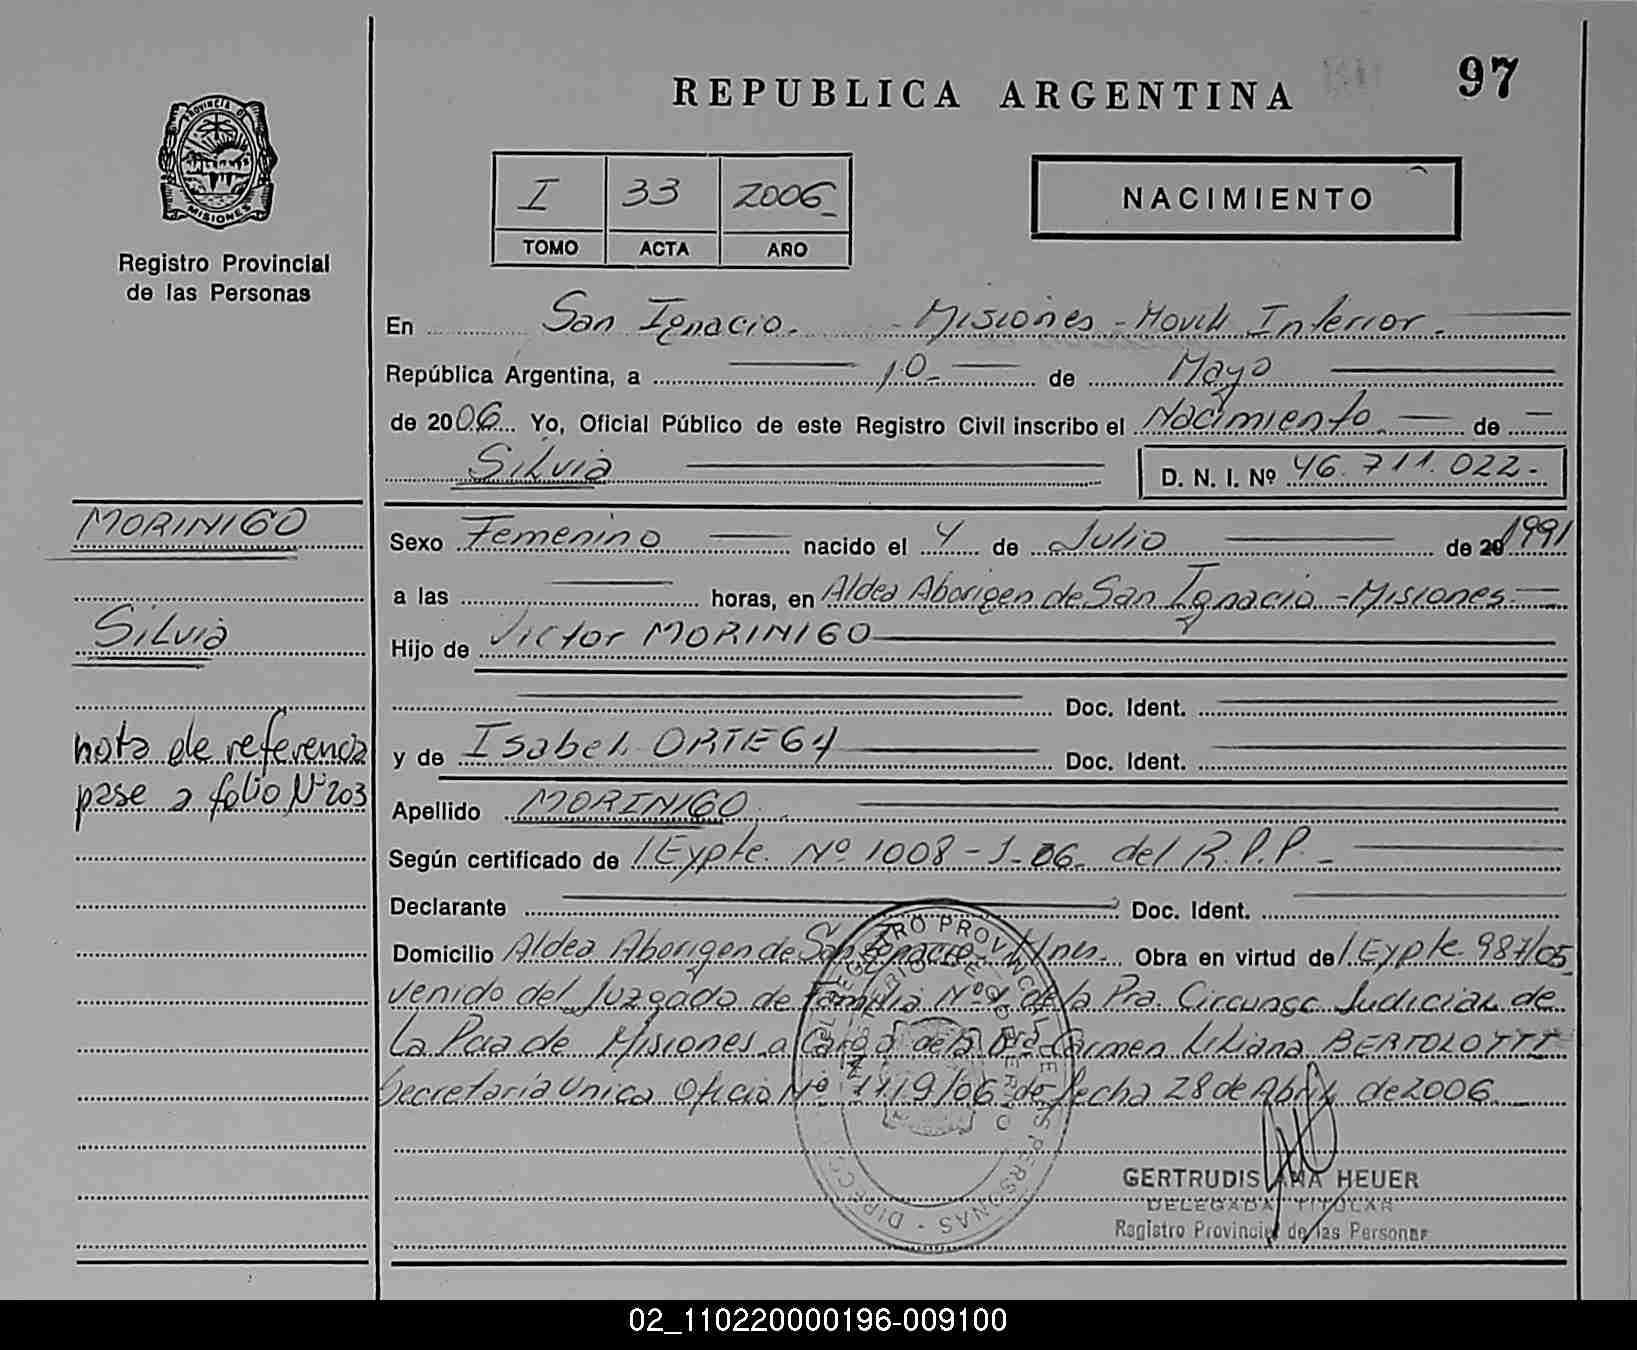 REPUBLICA ARGENTINA
97
PROVINCIA DE
MISIONES
Registro Provincial
de las Personas
I 33 2006
TOMO ACTA AÑO
NACIMIENTO
En San Ignacio. - Misiones - Movil Interior.
República Argentina, a 10 de Mayo
de 2006 Yo, Oficial Público de este Registro Civil inscribo el Nacimiento de
Silvia D. N. I. Nº 46.711.022.-
MORINIGO
Silvia
nota de referencia
pase a folio Nº 203
Sexo Femenino nacido el 4 de Julio de 20 1991
a las horas, en Aldea Aborigen de San Ignacio - Misiones.
Hijo de Victor MORINIGO
Doc. Ident.
y de Isabel ORTEGA Doc. Ident.
Apellido MORINIGO
Según certificado de Expte. Nº 1008-J-06. del R.P.P.
Declarante Doc. Ident.
Domicilio Aldea Aborigen de San Ignacio Mnes. Obra en virtud de Expte 987/05
venido del Juzgado de Familia Nº 1 de la Pra. Circunsc Judicial de
La Pcia de Misiones a Cargo de la Dra Carmen Liliana BERTOLOTTI
Secretaría Unica Oficio Nº 1119/06 de fecha 28 de Abril de 2006
GERTRUDIS ANA HEUER
DELEGADA TITULAR
Registro Provincial de las Personas
02_110220000196-009100